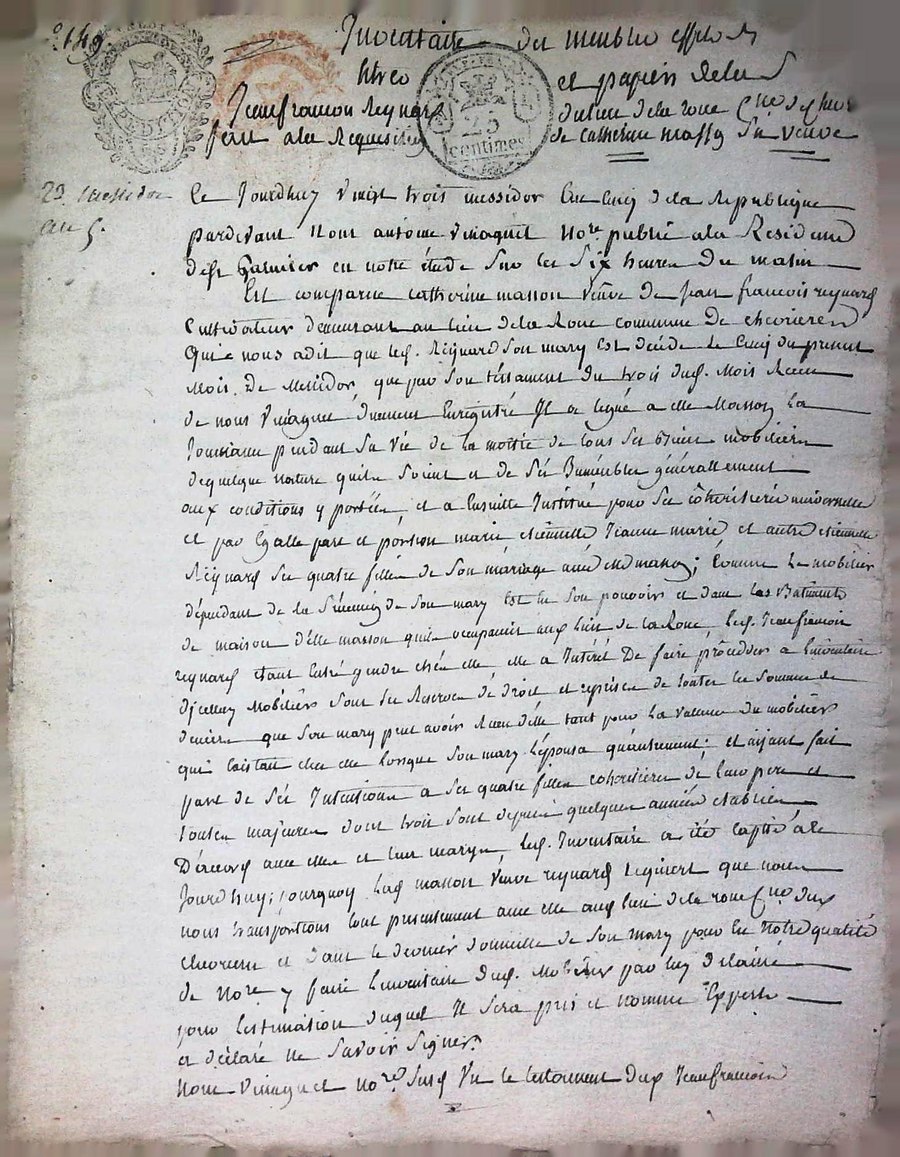 n° 149
Inventaire des meubles effets
titres et papiers
Jean françois Reynard du lieu de la roue
fait a la Requisition de Catherine masson sa veuve
25
centimes
23 Messidor
an 5.
Ce Jourdhuy vingt trois messidor an cinq de la Republique
pardevant nous antoine vinagnet Nore public a la Residence
de st Galmier en notre étude sur les six heures du matin
Est comparue Catherine masson veuve de Jean francois reynard
Cultivateur demeurant au lieu de la Roue commune de chevrieres
Qui nous a dit que led. Reynard son mary est décédé le cinq du present
mois de Messidor, que par son testament du trois dud. mois Receu
de nous vinagnet duement Enregistré Il a legué a elle Masson la
Jouissance pendant sa vie de la moitié de tous ses biens mobiliers
de quelque nature quils soient et de ses Immeubles générallement
aux conditions y portées, et a Ensuitte Institué pour ses cohéritieres universelles
et par Egalle part et portion marie etiennette Jeanne marie et autre etiennette
Reynard ses quatre filles de son mariage avec elle masson; Comme le mobilier
dépendant de la succession de son mary est en son pouvoir et dans les Batiments
de maison d'elle masson quils occupaient aud. lieu de la Roue, led. Jean francois
reynard étant entré gendre chés elle elle a Interêt de faire procéder a linventaire
dicelluy Mobilier sous les Reserves de droit et reprises de toutes les sommes de
deniers que son mary peut avoir Receu d'elle tant pour la valleur du mobilier
qui Existait chez elle lorsque son mary lépousa quautrement; et aÿant fait
part de ses Intentions a ses quatre filles cohéritieres de leur pere et
toutes majeures dont trois sont depuis quelques années établies
D'accord avec elles et leurs marys, led. Inventaire a été
Jourdhuy; pourquoy lad masson veuve reynard requiert que nous
nous transportions tout presentement avec elle aud lieu de la roue Cne dud
chevrieres et dans le dernier domicille de son mary pour en notre qualité
de Nore y faire linventaire dud. Mobilier par luy délaissé
pour lestimation duquel Il sera pris et nommé Experts
et déclaré ne savoir signer.
Nous vinagnet nore susd vu le testament dud Jean francois